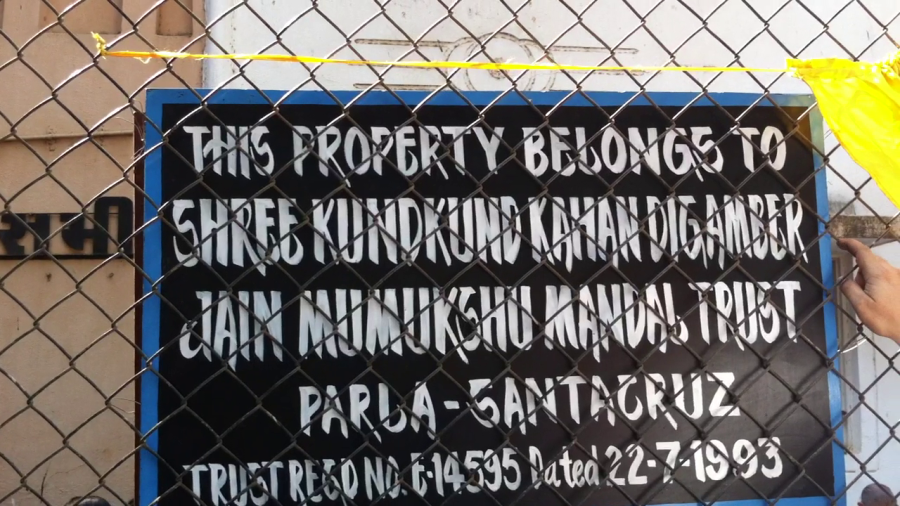 THIS PROPERTY BELONGS TO
SHREE KUNDKUND KAHAN DIGAMBER
JAIN MUMUKSHU MANDAL TRUST
PARLA-SANTACRUZ
TRUST REGD NO. E-14595 Dated 22-7-1993